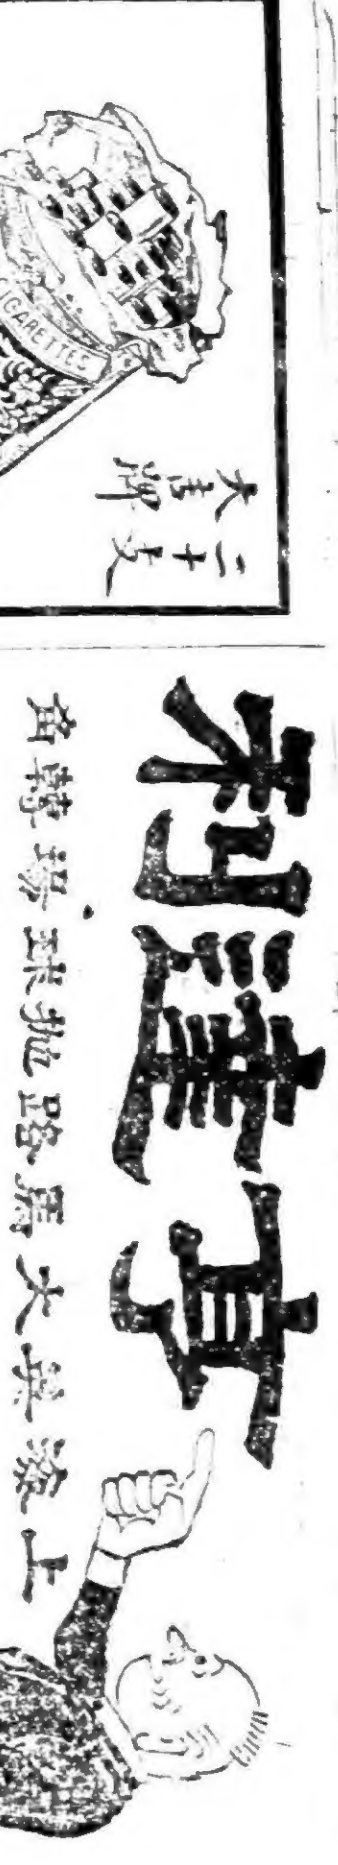 CIGARETTES
二十支
大喜牌
亨達利
上海英大馬路拋球場轉角